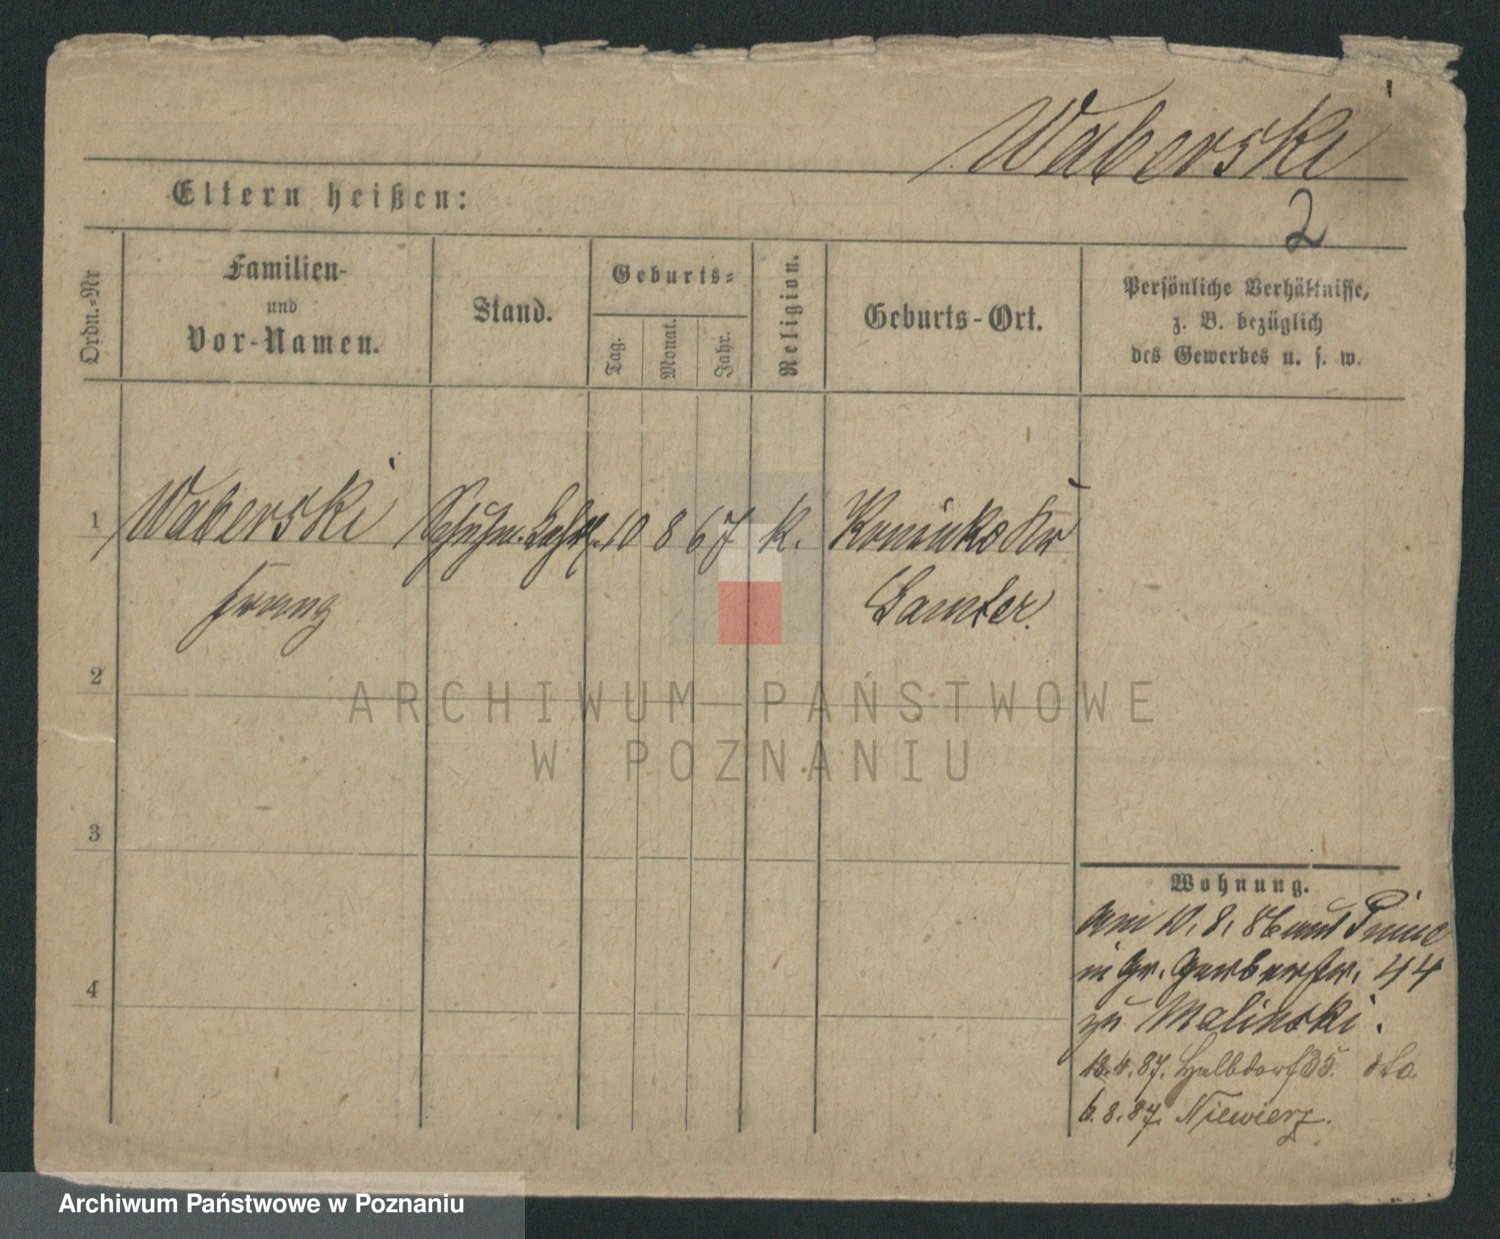 Waberski
2
Eltern heißen:
Ordn.-Nr
Familien-
und
Vor-Namen.
Stand.
Geburts-
Tag.
Monat.
Jahr.
Religion.
Geburts-Ort.
Persönliche Verhältnisse,
z. B. bezüglich
des Gewerbes u. s. w.
1 Waberski Schuhm. Lehrl. 10 8 67 k. Koninko Kr
Franz Samter.
2
3
4
ARCHIWUM PAŃSTWOWE
W POZNANIU
Wohnung.
am 10. 8. 86 aus Pinne
in Gr. Gerberstr. 44
zu Malinski.
4. 87. Halbdorfstr 5. dto.
6. 8. 87. Niewierz.
Archiwum Państwowe w Poznaniu